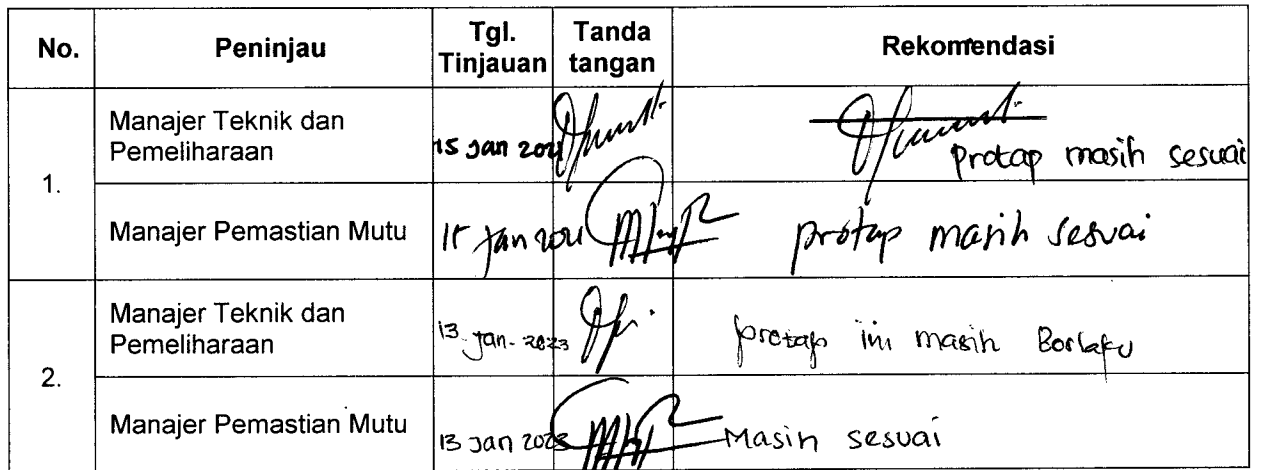 No. Peninjau Tgl. Tinjauan Tanda tangan Rekomendasi
1.
Manajer Teknik dan Pemeliharaan 15 Jan 2021 protap masih sesuai
Manajer Pemastian Mutu 15 Jan 2021 protap masih sesuai
2.
Manajer Teknik dan Pemeliharaan 13. Jan. 2023 protap ini masih Berlaku
Manajer Pemastian Mutu 13 Jan 2023 Masih sesuai